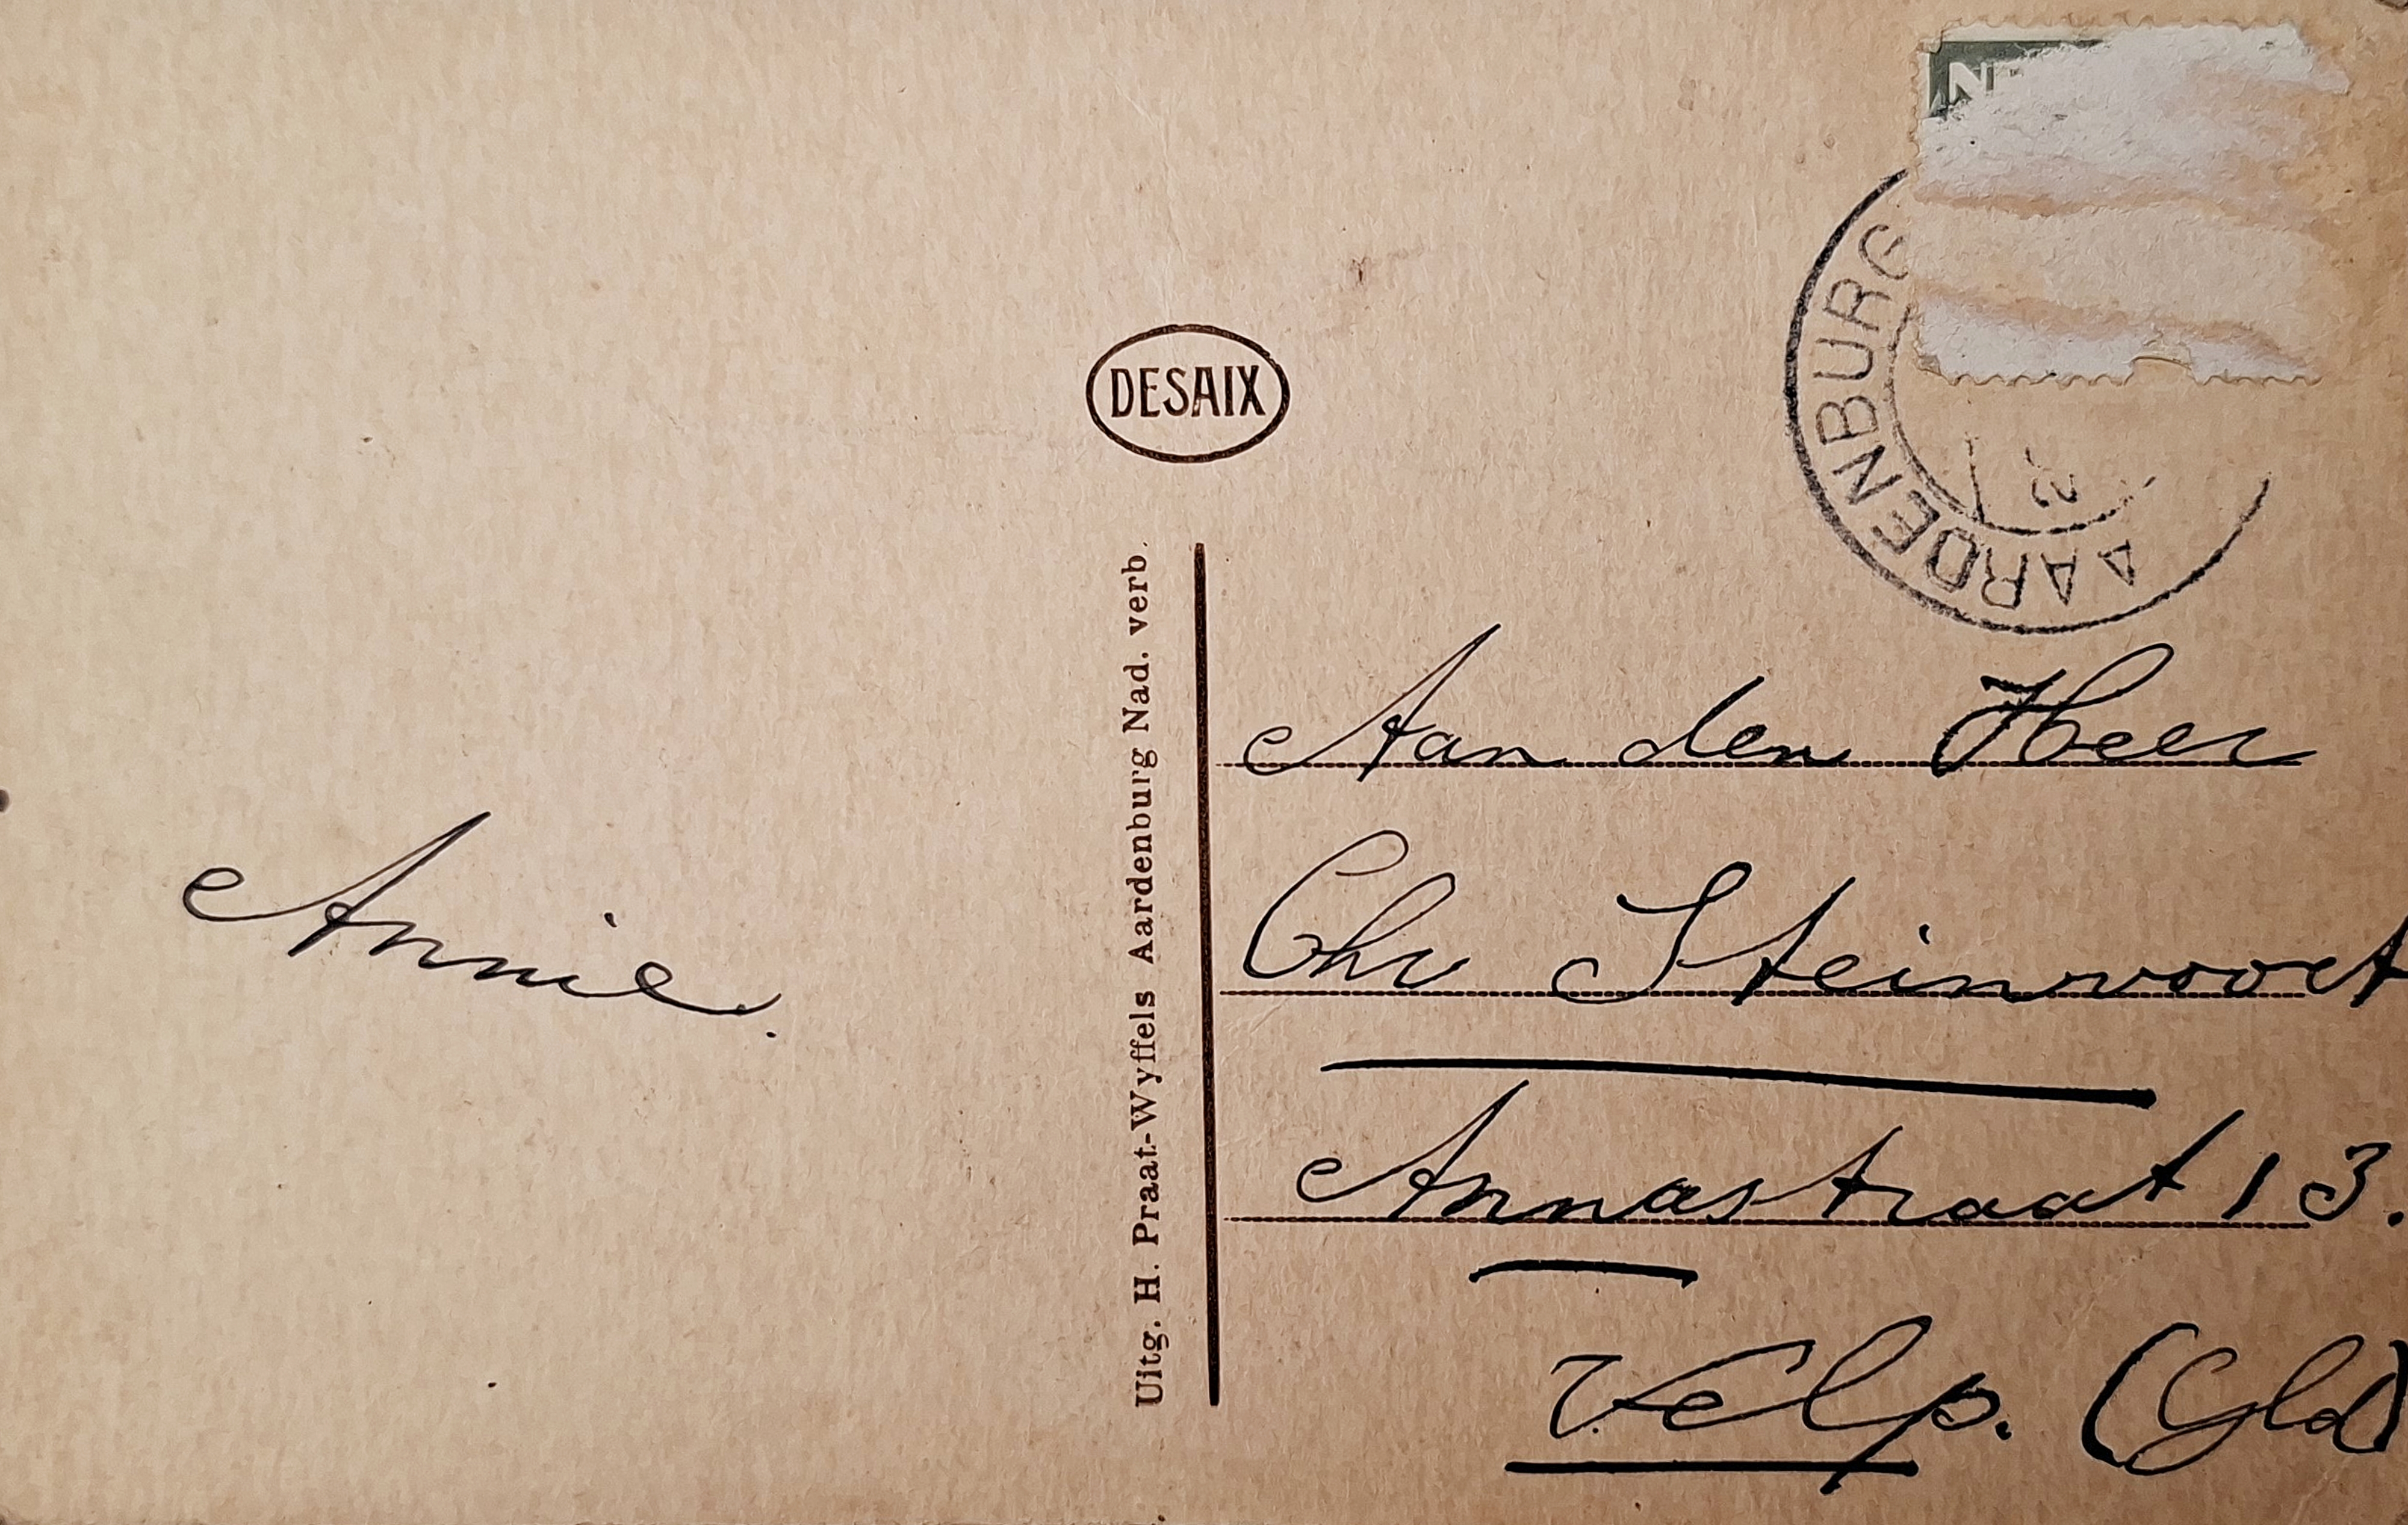 Annie.
DESAIX
Uitg. H. Praat-Wyffels Aardenburg Nad. verb.
N
AARDENBURG
2
Aan den Heer
Chr Steinvoort
Annastraat 13.
Velp. (Gld)